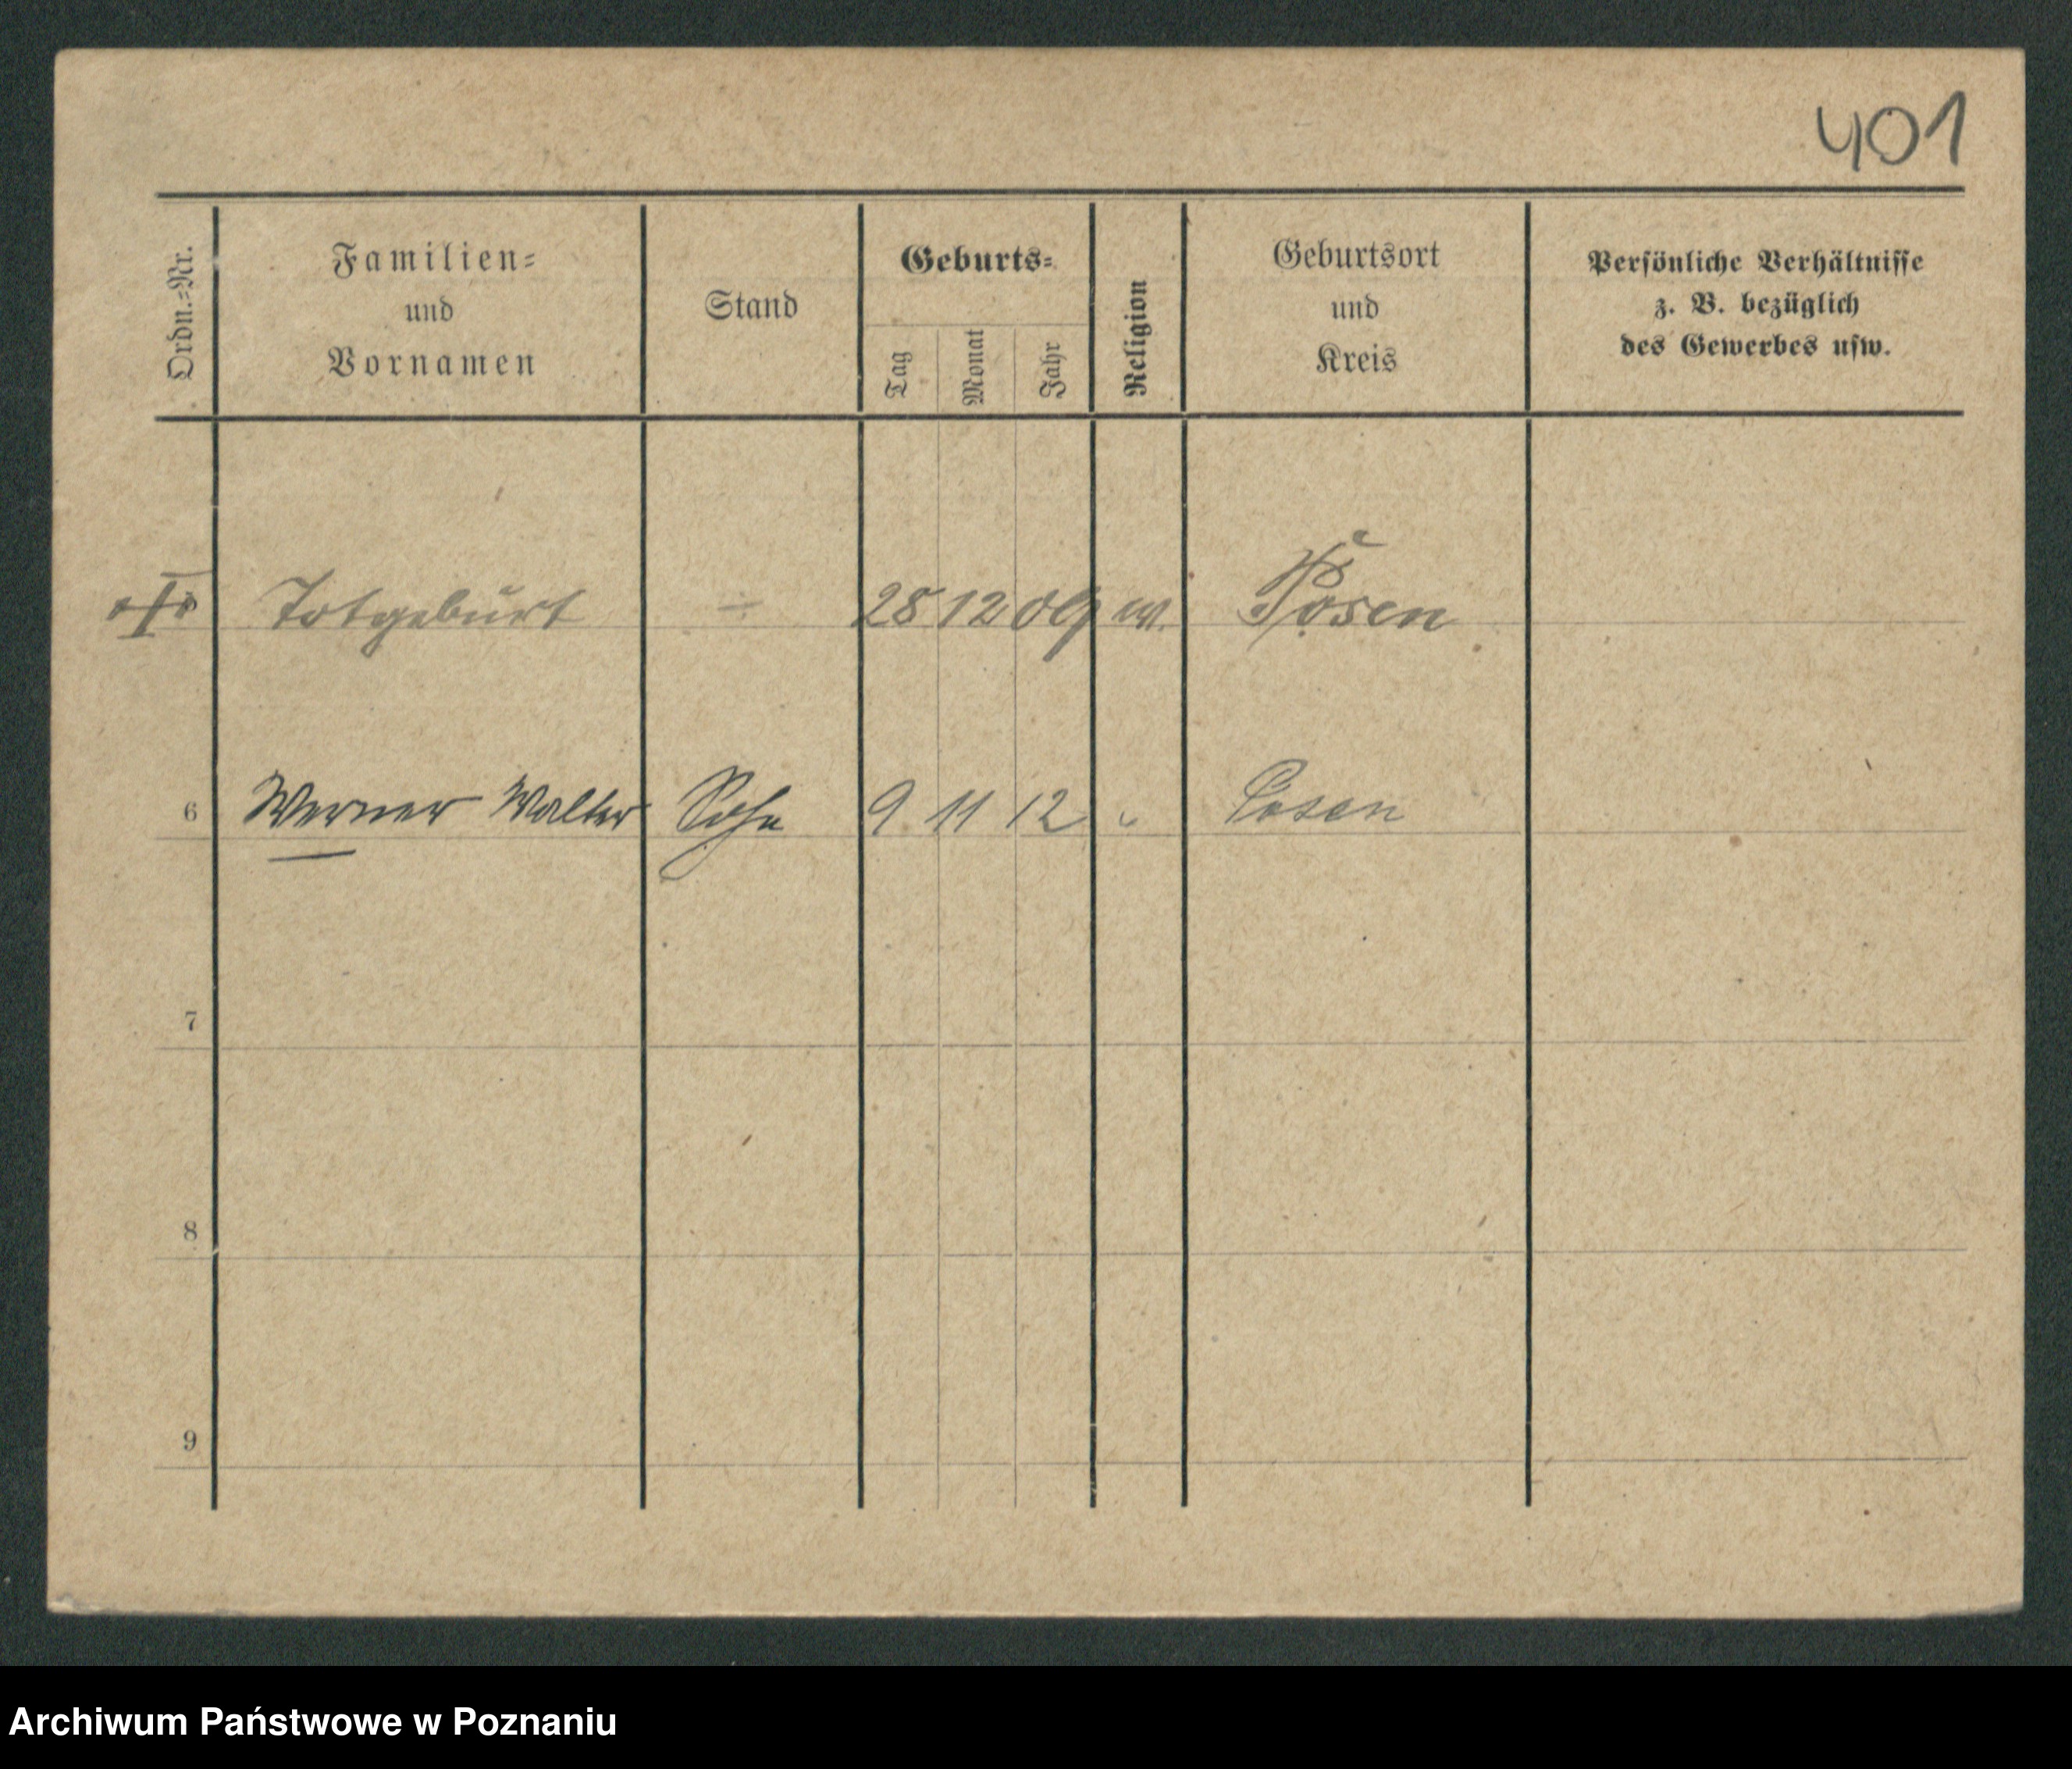 401
Ordn.=Nr.
Familien=
und
Vornamen
Stand
Geburts=
Tag
Monat
Jahr
Religion
Geburtsort
und
Kreis
Persönliche Verhältnisse
z. B. bezüglich
des Gewerbes usw.
Totgeburt ÷ 28 12 09 Posen
6 Werner Walter Sohn 9 11 12 " Posen
7
8
9
Archiwum Państwowe w Poznaniu